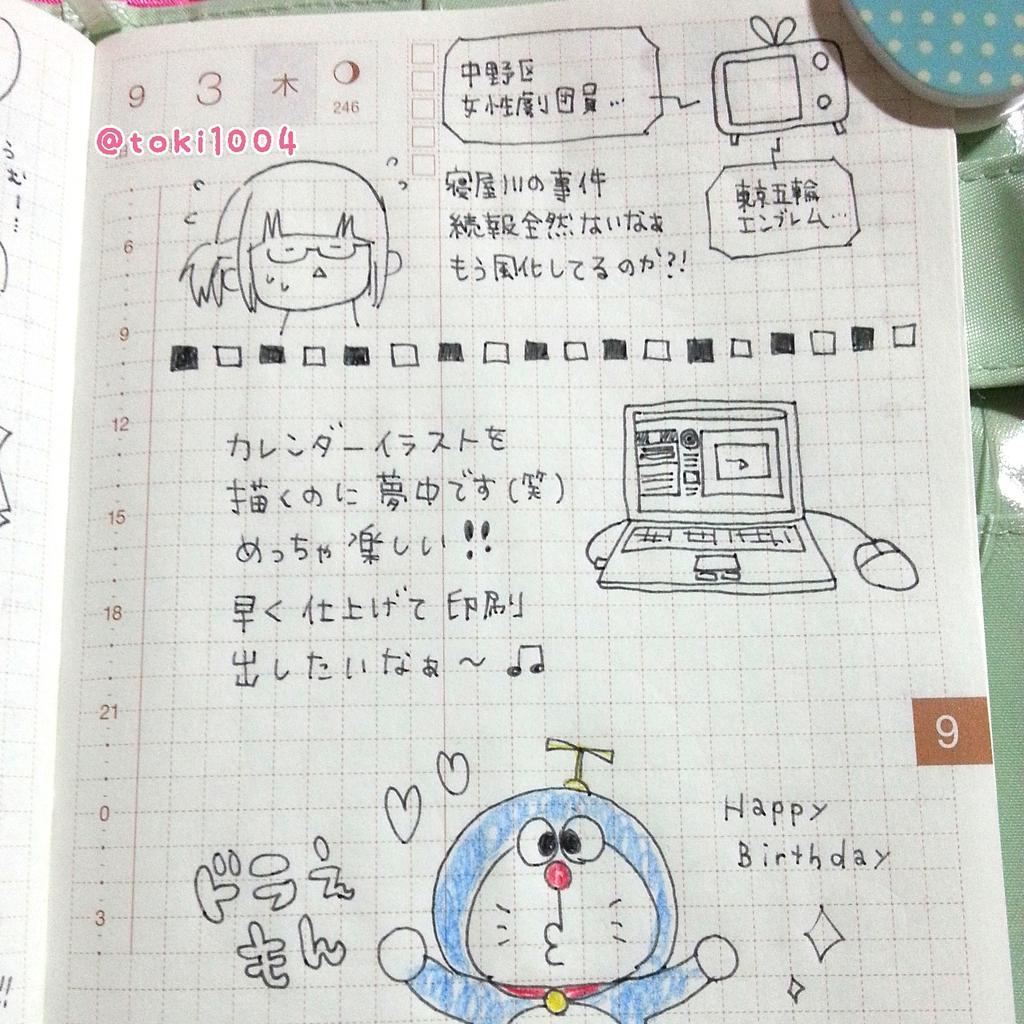 9 3 木
246
@toki1004
中野区
女性劇団員…
東京五輪
エンブレム…
寝屋川の事件
続報全然ないなぁ
もう風化してるのか?!
6
9
12
15
18
21
0
3
カレンダーイラストを
描くのに夢中です(笑)
めっちゃ楽しい!!
早く仕上げて印刷
出したいなぁ～♫
9
Happy
Birthday
ドラえ
もん
うむー…
!!